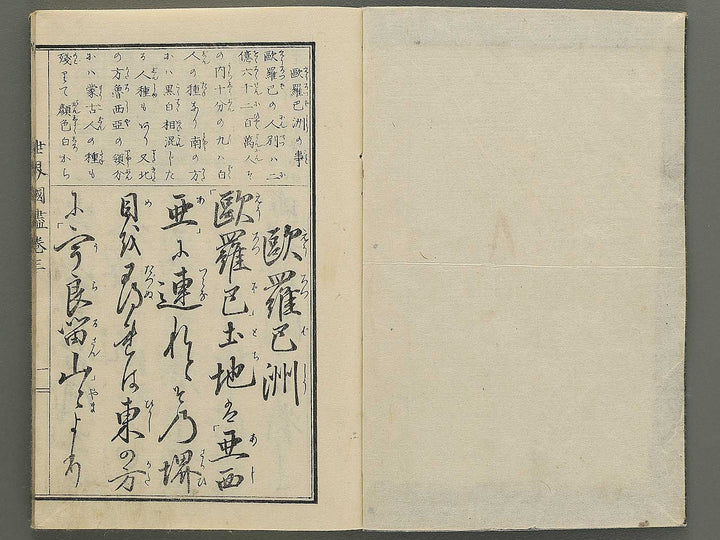 歐羅巴洲の事
歐羅巴の人別ハ二
億六千二百萬人そ
の内十分の九ハ白
人の種あり南の方
にハ黒白相混した
る人種もあり又北
の方魯西亜の領分
にハ蒙古人の種も
残りて顔色白から
歐羅巴洲
「歐羅巴土地は「亜西
亜」に連れどその堺
目を尋れば東の方
に「宇良留山」より
世界國盡卷三
一